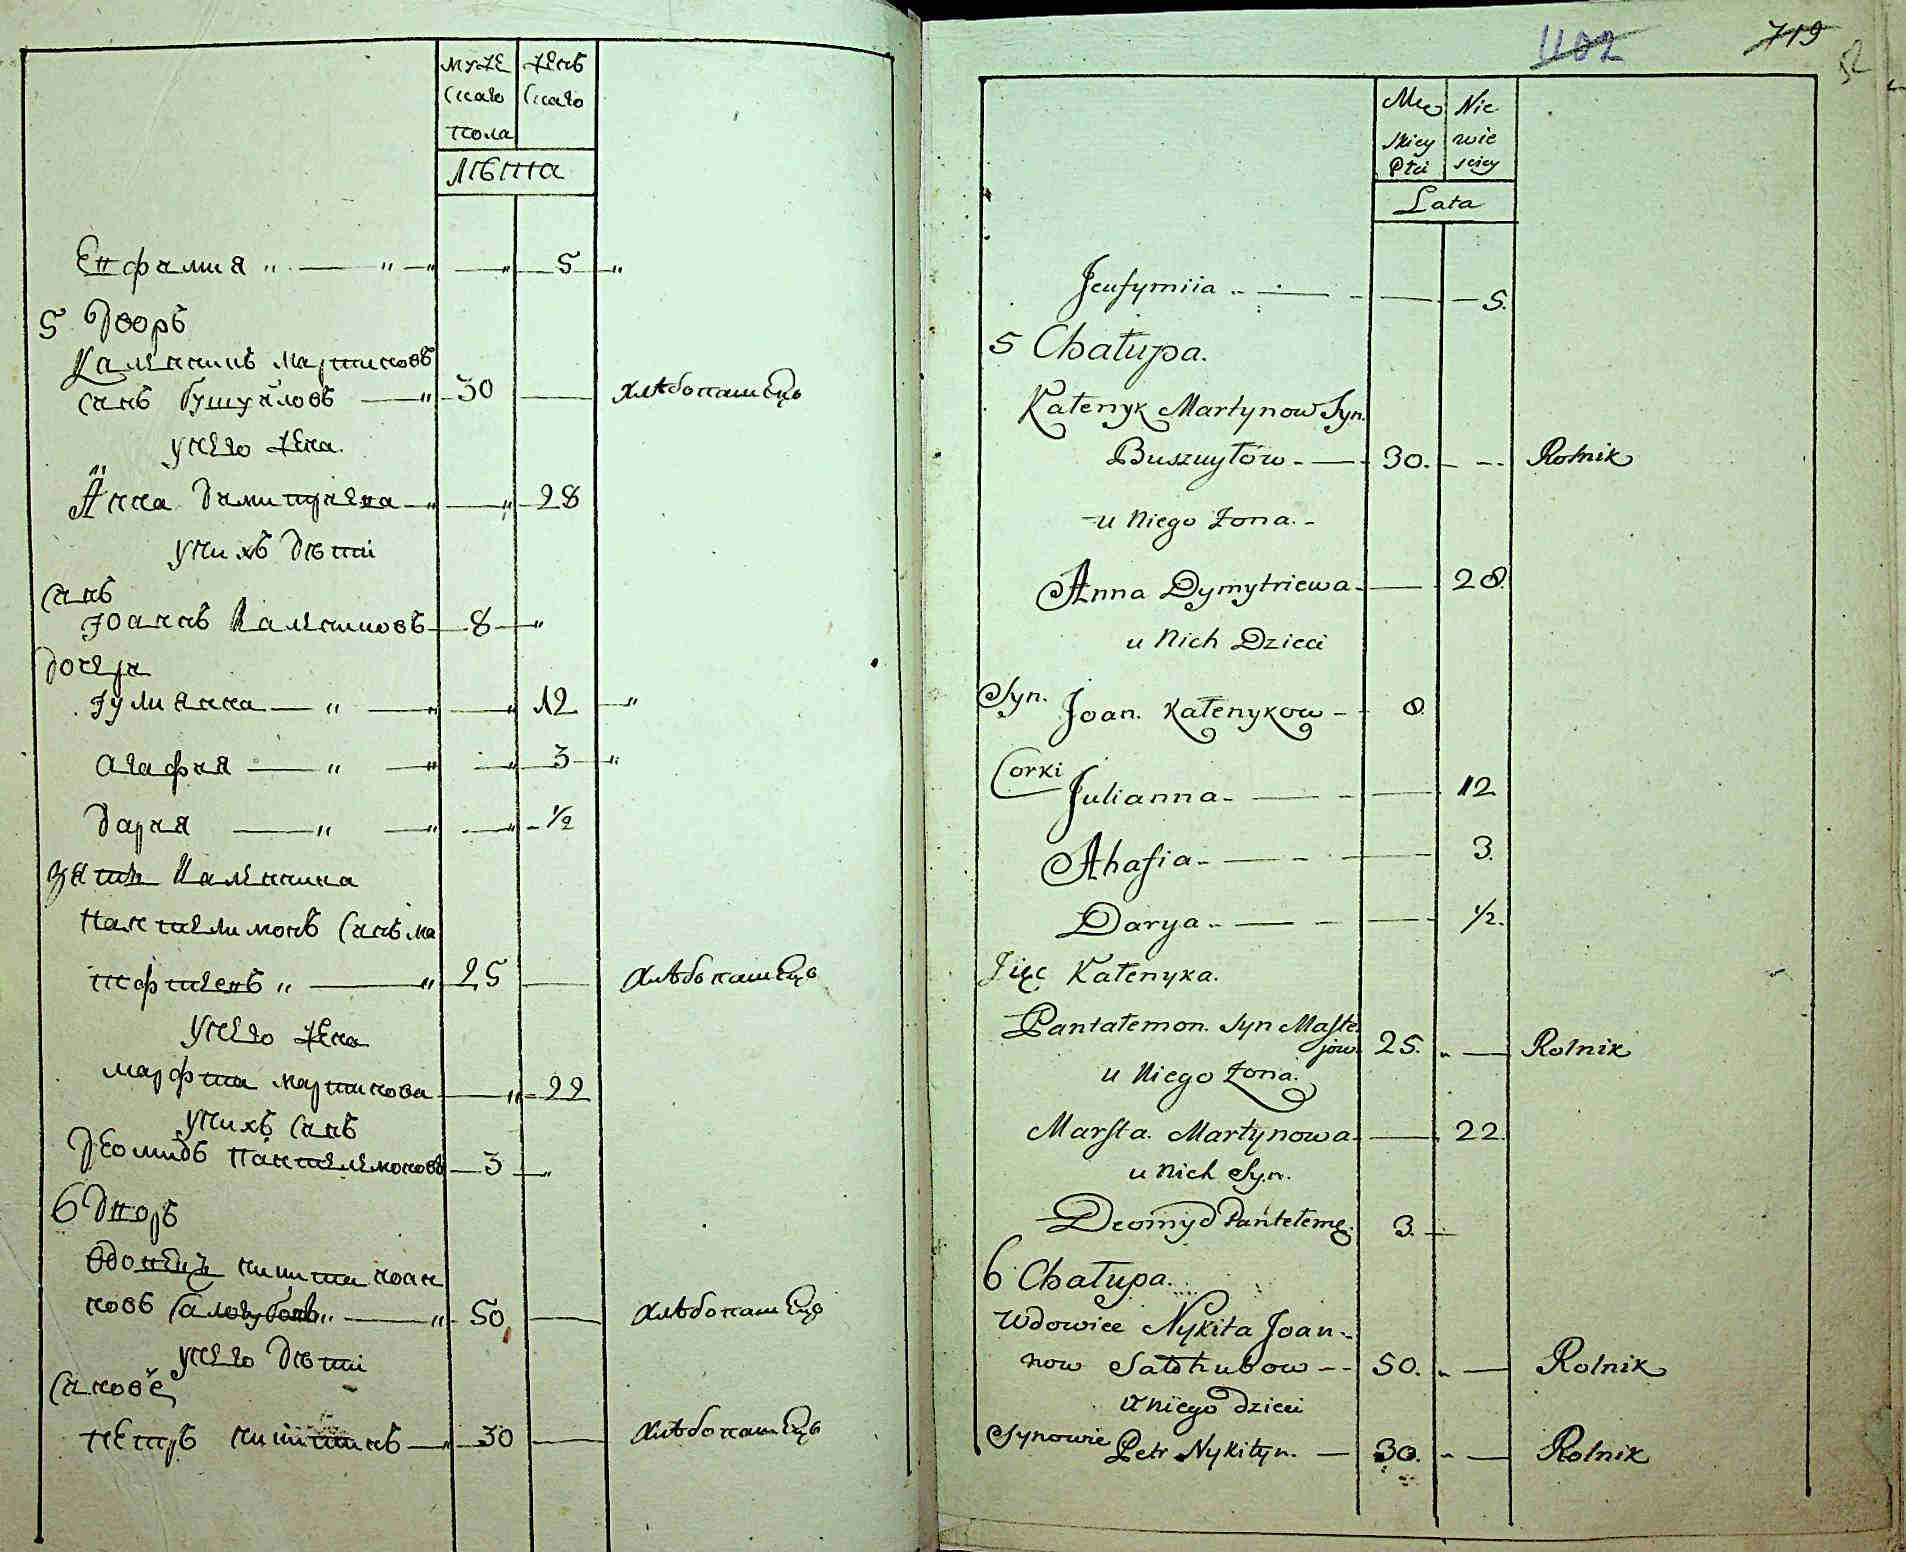 муже
скаго
пола
женъ
скаго
лѣта
Евфамия „ — „ — „ — „ 5 „
5 Дворъ
Каленикъ Мартиновъ
синъ бушуйловъ — „ 30 — хлѣбопашецъ
у него жена
Анна Димитриева — „ — „ 28
у нихъ дѣти
синъ
Іоаннъ Калениковъ — 8 — „
дочери
Іулианна — „ — „ — „ 12 — „
Агафия — „ — „ — „ 3 — „
Дария — „ — „ — „ 1/2
зять Каленика
Пантелимонъ синъ ма
тофтеевъ „ — „ 25 — хлѣбопашецъ
у него жена
Марфта Мартинова — „ 22
у нихъ синъ
Деомидъ Пантелемоновъ — 3 — „
6 Дворъ
Вдовецъ Никита Иоан
новъ „ — „ 50 — хлѣбопашецъ
у него дѣти
синовѣ
Петръ Никитинъ — „ 30 — хлѣбопашецъ
1102 719
Mę
skiey
Płci
Nie
wie
sciey
Lata
Jeufymiia — — — 5.
5 Chałupa.
Kałenyk Martynow Syn.
Buszuyłow — 30. — Rolnik
u Niego Żona.
Anna Dymytriewa — 28.
u Nich Dzieci
Syn. Joan. Kałenykow — 8.
Corki
Julianna — — 12
Ahafia — — 3.
Darya — — 1/2.
Zięc Kałenyka.
Pantałemon. Syn Mafte
jow. 25. — Rolnik
u Niego Żona.
Marfta. Martynowa. — 22.
u Nich Syn.
Deomyd Pantełemo. 3. —
6 Chałupa.
Wdowiec Nykita Joan-
now Sałohubow — 50. — Rolnik
u niego dzieci
Synowie Petr Nykityn. — 30. — Rolnik